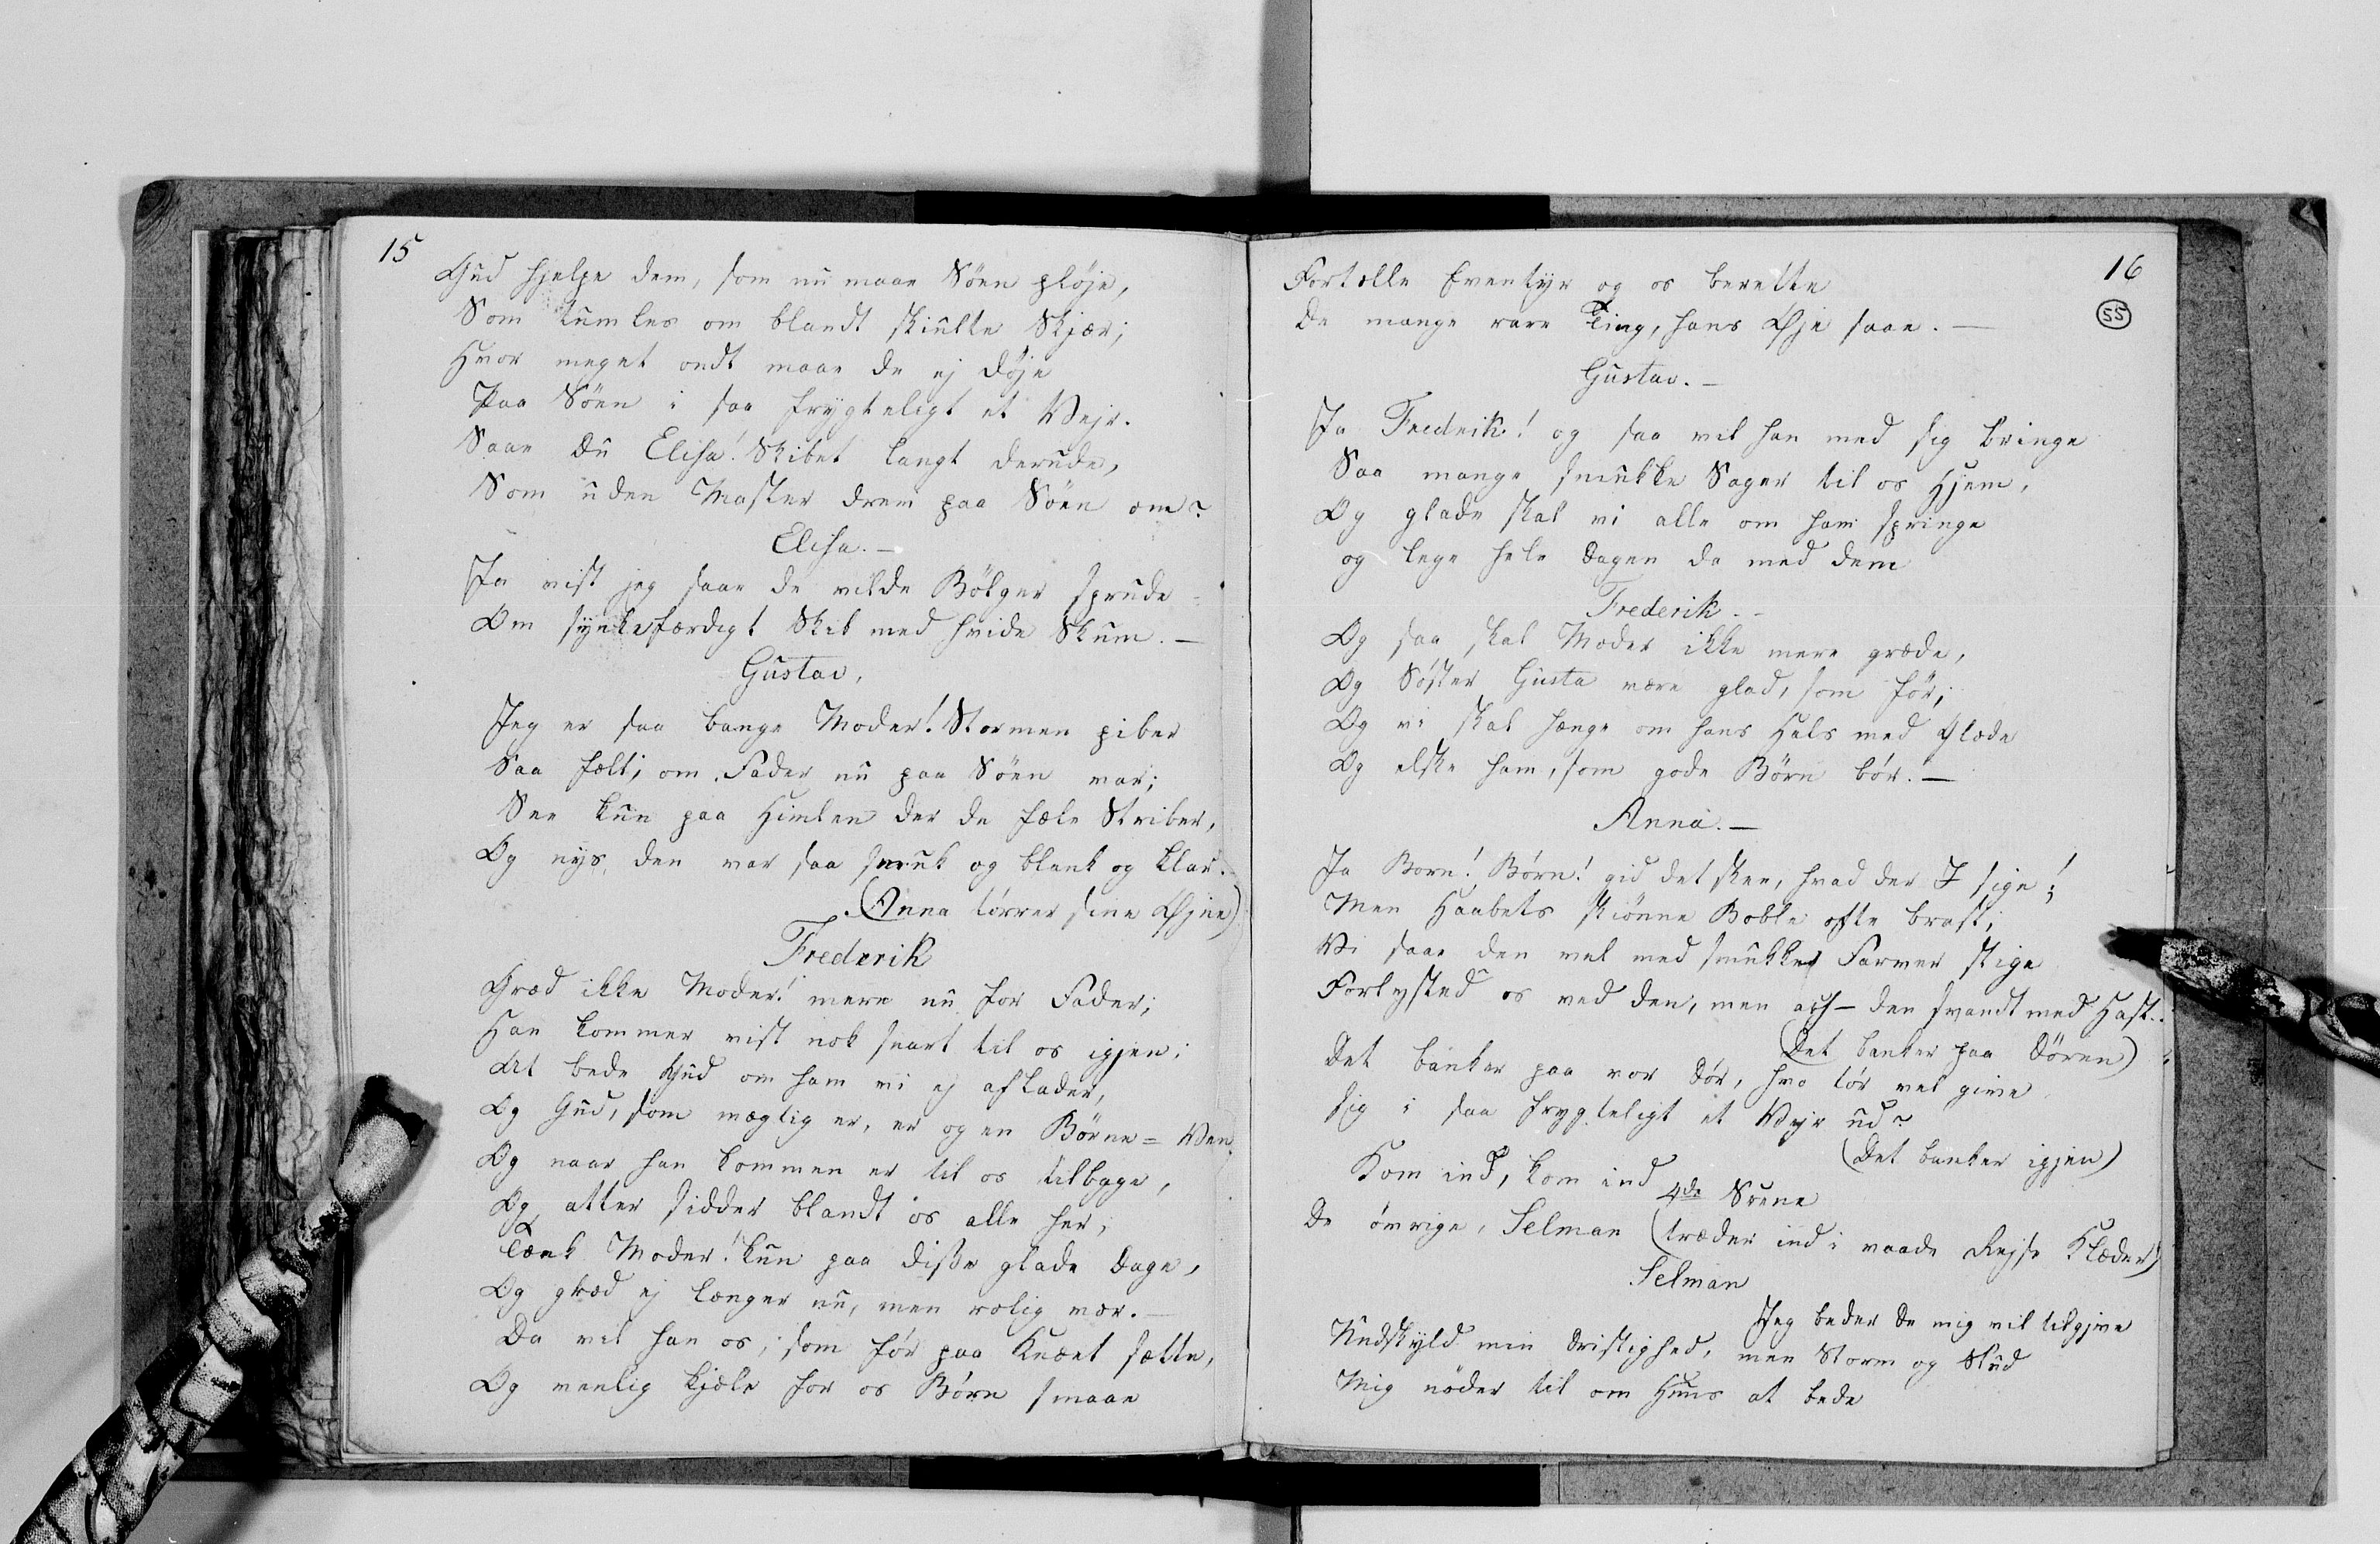 15
Gud hjelpe dem, som nu maae Söen pløje,
Som tumles om blandt skiulte Skjær;
Hvor meget ondt maae de ej døje
Paa Söen i saa frygteligt et Vejr.
Saae du Elisa! Skibet langt derude,
Som uden Master drev paa Söen om?
Elisa. —
Ja vist jeg saae de vilde Bölger sprude
Om synkefærdigt Skib med hvide Skum. —
Gustav.
Jeg er saa bange Moder! Stormen piber
Saa fælt; om Fader nu paa Söen var;
See kun paa Himlen der de fæle Striber,
Og nys den var saa smuk og blank og klar.
(Anna törrer sine Øjne)
Frederik
Græd ikke Moder! mere nu for Fader;
Han kommer vist nok snart til os igjen;
At bede Gud om ham vi ej aflader,
Og Gud, som mægtig er, er og en Börne=Ven.
Og naar han kommen er til os tilbage,
Og atter sidder blandt os alle her;
Tænk Moder! kun paa disse glade Dage,
Og græd ej længer nu, men rolig vær. —
Da vil han os, som för paa Knæet sætte,
Og venlig kjæle for os Börn smaae
16
55
Fortælle Eventyr og os berette
De mange rare Ting, hans Øje saae. —
Gustav. —
Ja Fredrik! og saa vil han med sig bringe
Saa mange smukke Sager til os Hjem,
Og glade skal vi alle om ham springe
og lege hele Dagen da med dem
Frederik. —
Og saa skal Moder ikke mere græde,
Og Söster Gusta være glad, som för;
Og vi skal hænge om hans Hals med Glæde
Og elske ham, som gode Börn bör. —
Anna. —
Ja Born! Börn! gid det skee, hvad der I sige!;
Men Haabets skiönne Boble ofte brast;
Vi saae den vel med smukke Farver stige
Forlysted os ved den, men ach — den svandt med Hast.
(Det banker paa Dören)
Det banker paa vor Dör, hvo tör vel give
sig i saa frygteligt et Vejr ud?
(Det banker igjen)
Kom ind, kom ind
4de Scene
De övrige, Selman (træder ind i vaade Rejse Klæder)
Selman
Jeg beder De mig vil tilgive
Undskyld min Dristighed, men Storm og Slud
Mig nöder til om Huus at bede